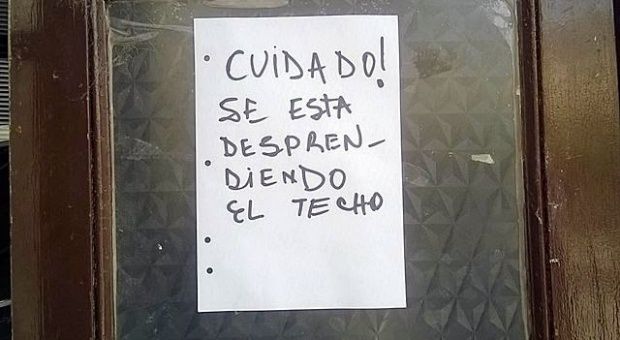 CUIDADO!
SE ESTA
DESPREN-
DIENDO
EL TECHO